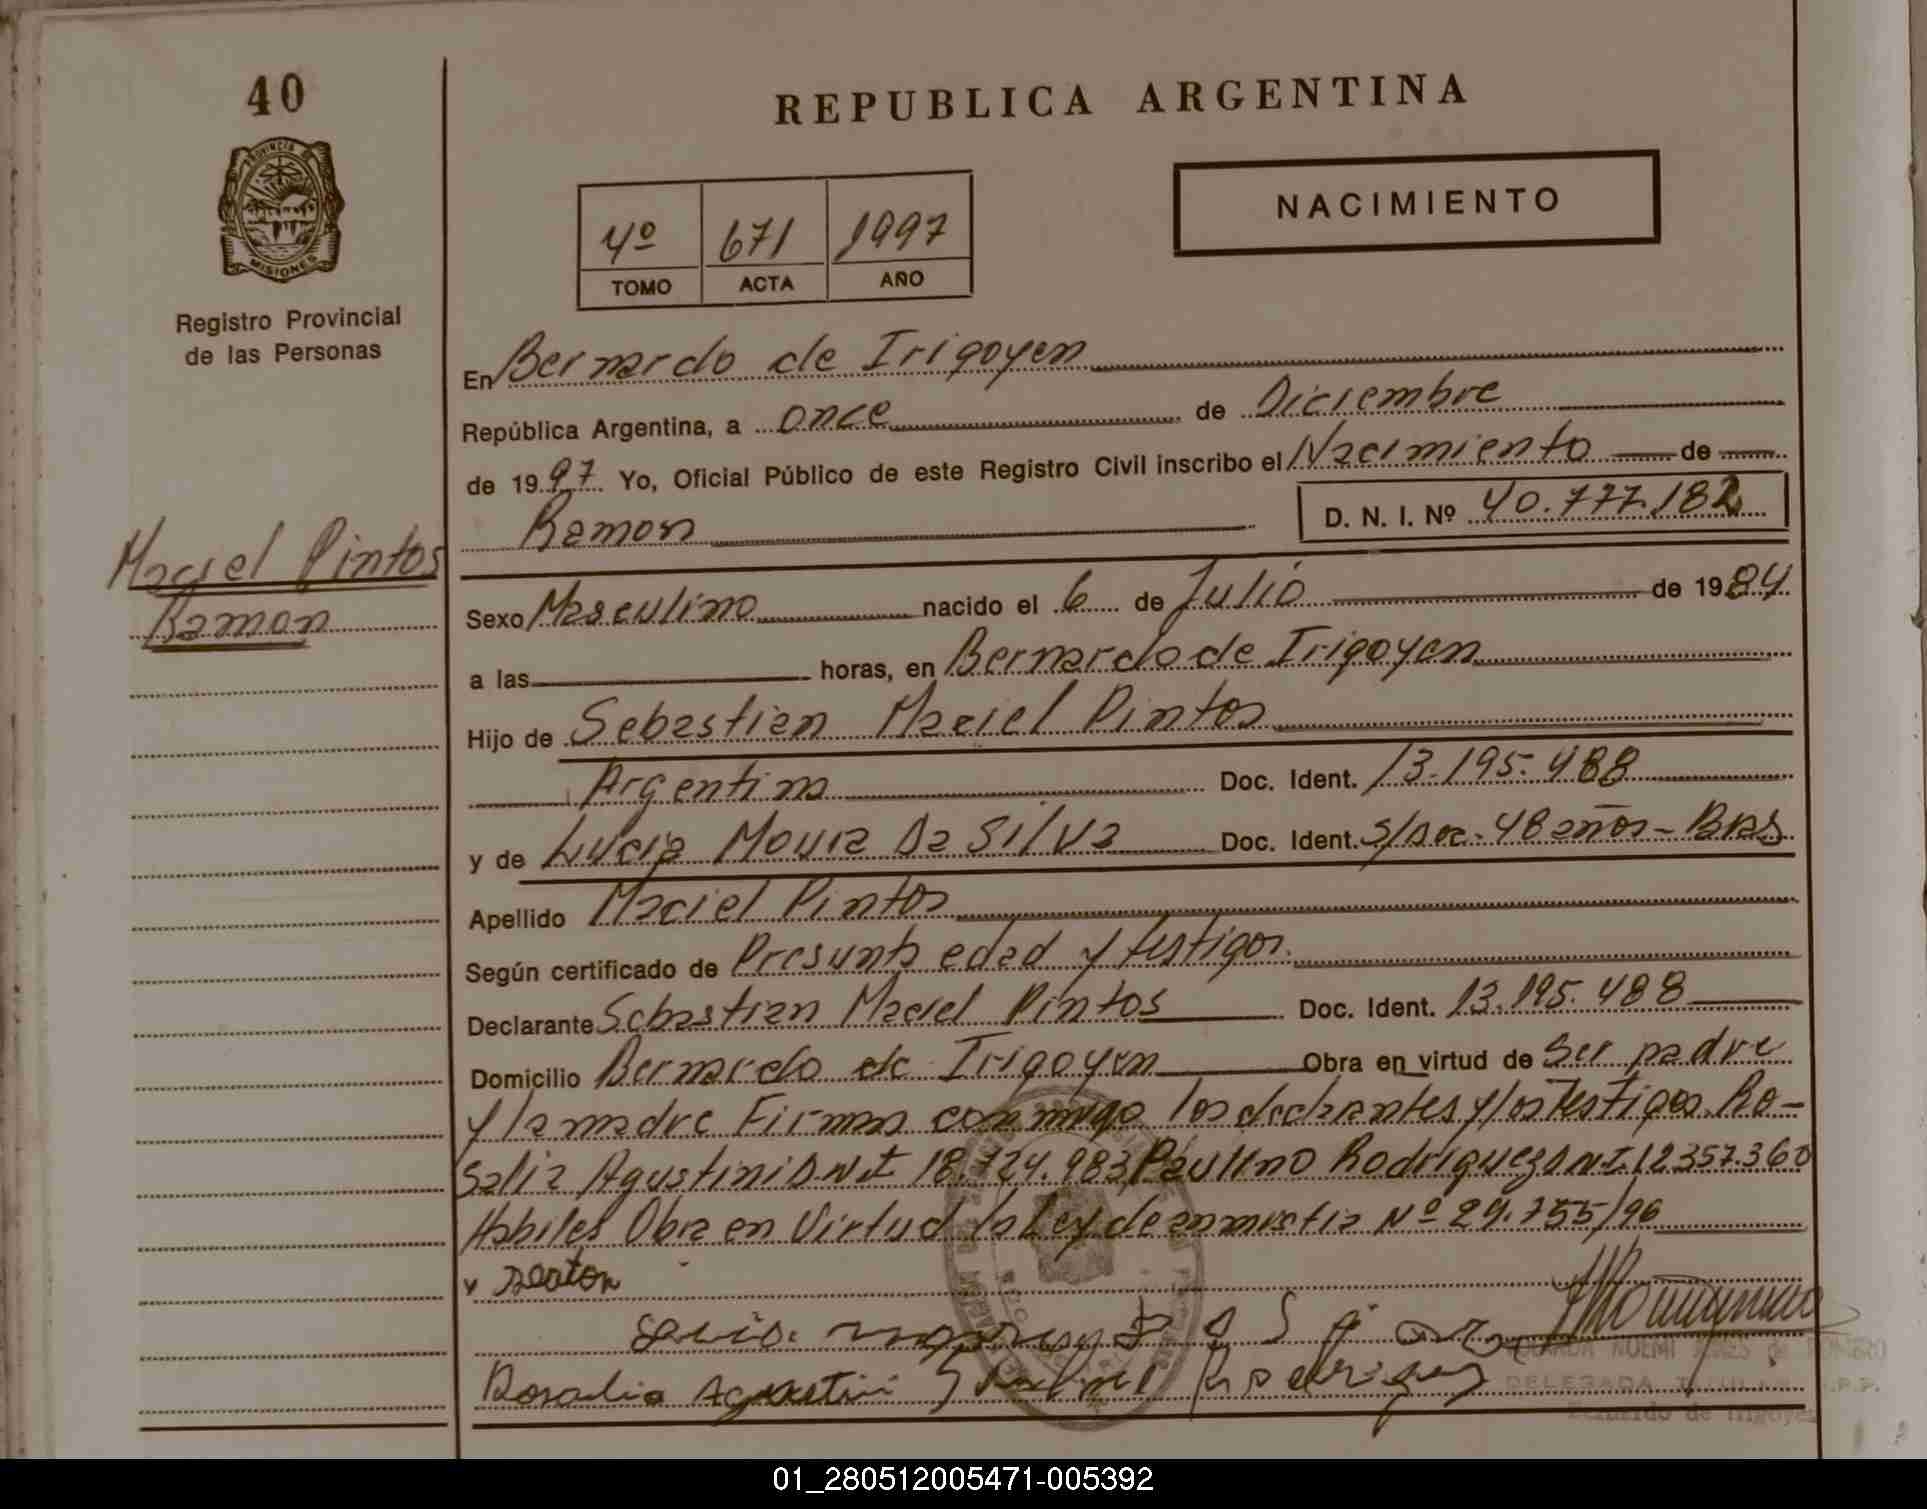 40
REPUBLICA ARGENTINA
PROVINCIA DE
MISIONES
Registro Provincial
de las Personas
NACIMIENTO
4º 671 1997
TOMO ACTA AÑO
En Bernardo de Irigoyen
República Argentina, a once de Diciembre
de 1997 Yo, Oficial Público de este Registro Civil inscribo el Nacimiento de
Ramon D. N. I. Nº 40.777.182
Maciel Pintos
Ramon
Sexo Masculino nacido el 6 de Julio de 1984
a las horas, en Bernardo de Irigoyen
Hijo de Sebastian Maciel Pintos
Argentina Doc. Ident. 13.195.488
y de Lucia Moura Da Silva Doc. Ident. S/Doc.-48 años-Bras
Apellido Maciel Pintos
Según certificado de Presunta edad y testigos.
Declarante Sebastian Maciel Pintos Doc. Ident. 13.195.488
Domicilio Bernardo de Irigoyen Obra en virtud de Ser padre
y la madre Firman conmigo los declarantes y los Testigos. Ro-
salia Agustini D.N.I 18.724.983 Paulino Rodriguez D.N.I. 12.357.360
Habiles Obra en Virtud la Ley de amnistia Nº 24.755/96
Rosalia Agustini Paulino Rodriguez
DELEGADA TITULAR R.P.P.
Bernardo de Irigoyen
01_280512005471-005392